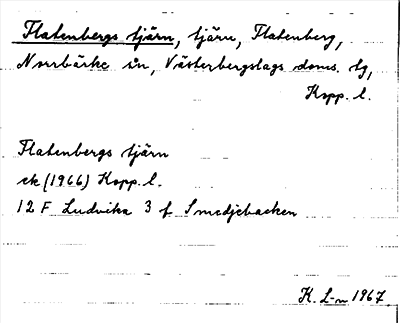 Flatenbergs tjärn, tjärn, Flatenberg,
Norrbärke sn, Västerbergslags doms. tg,
Kopp. l.
Flatenbergs tjärn
ek (1966) Kopp. l.
12 F Ludvika 3 f Smedjebacken
K. L-m 1967